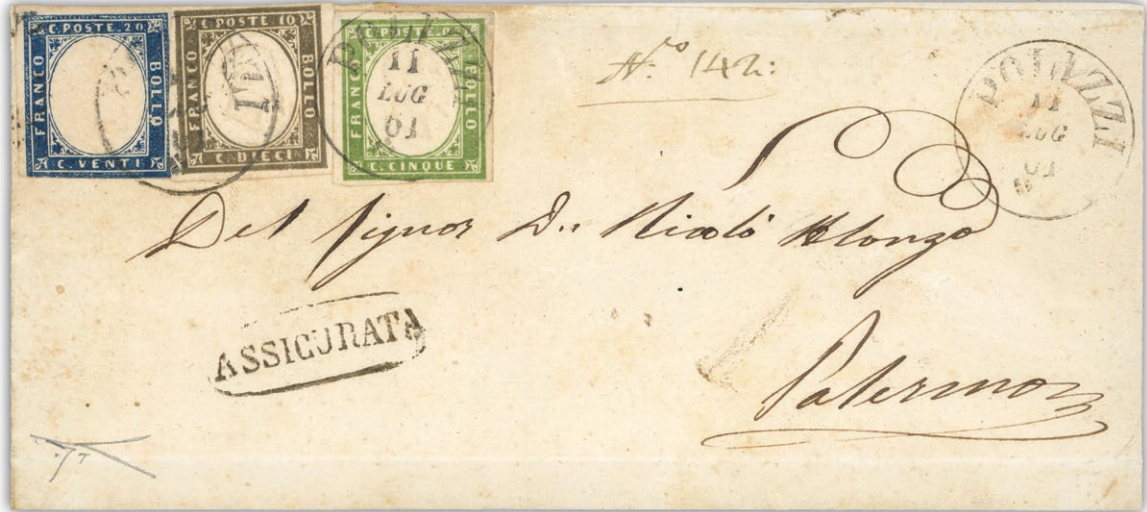 C. POSTE. 20
FRANCO
BOLLO
C. VENTI
C. POSTE 10
FRANCO
BOLLO
C. DIECI
FRANCO
BOLLO
C. CINQUE
POLIZZI
11
LUG
61
Nº 142:
POLIZZI
11
LUG
61
Del Signor Dn Nicolò
Palermo
ASSICURATA